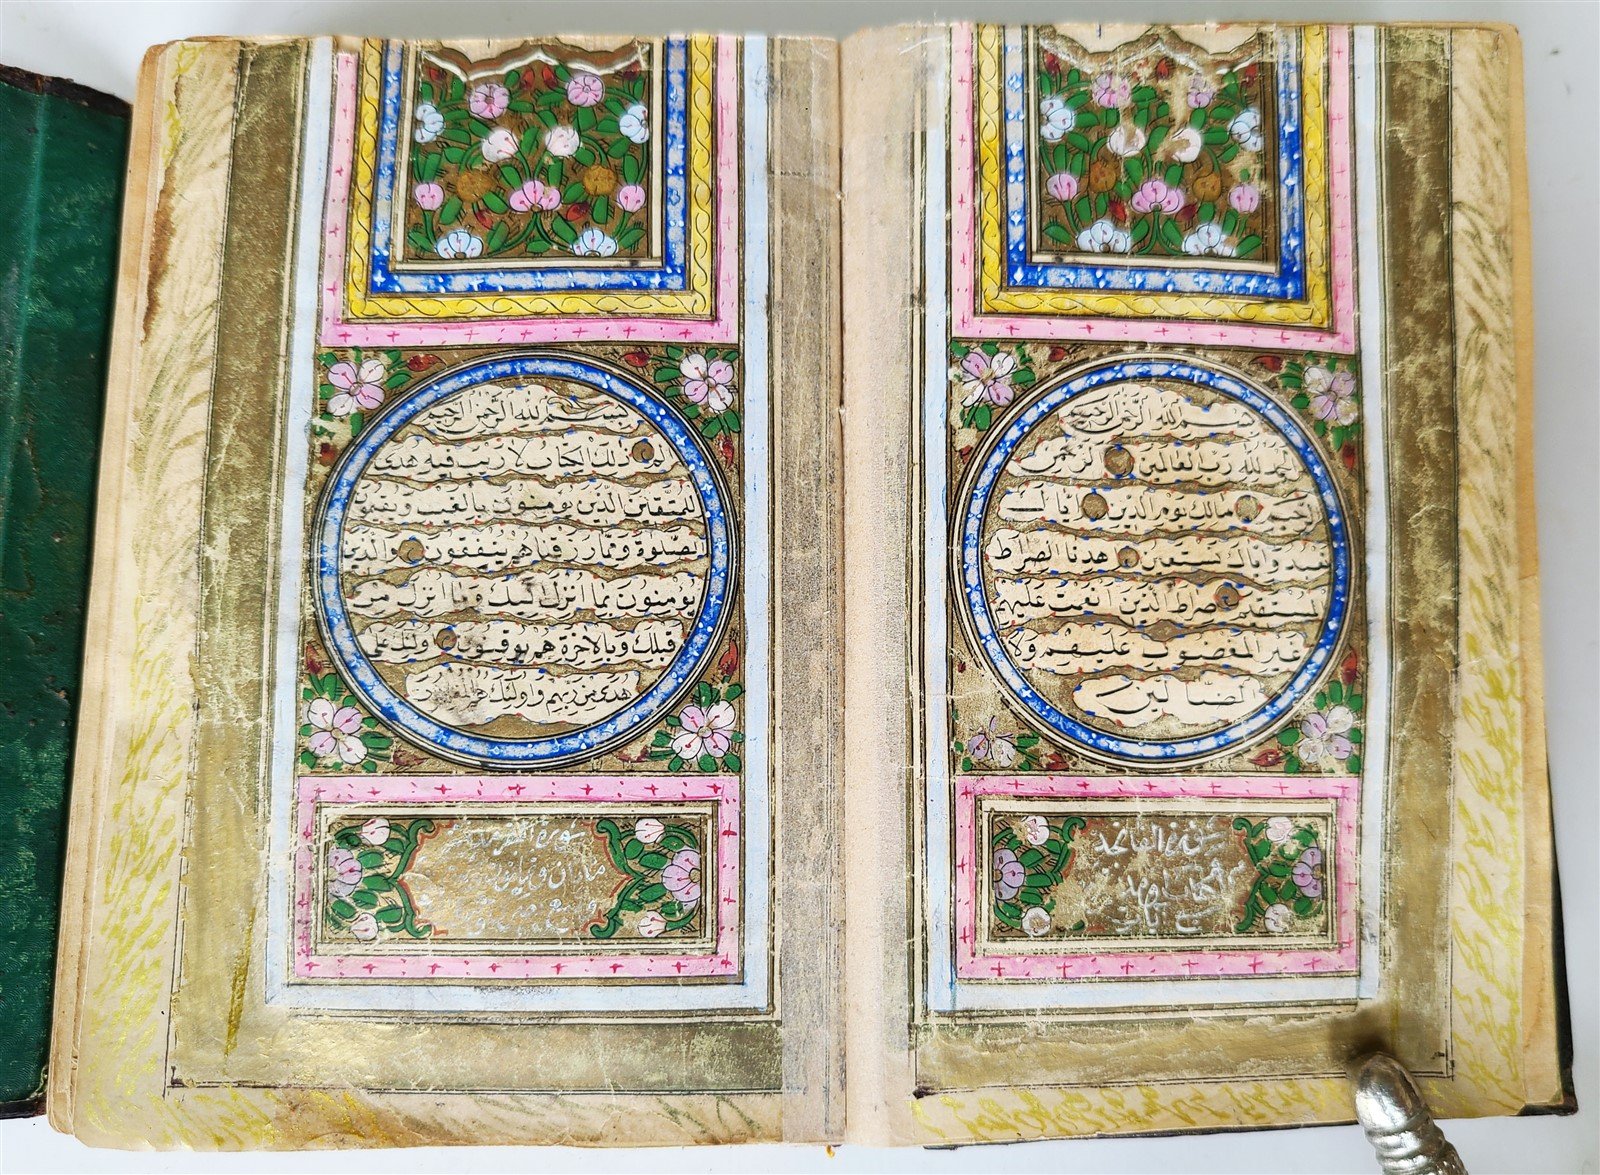 بسم الله الرحمن الرحيم
الحمد لله رب العالمين الرحمن
الرحيم مالك يوم الدين اياك
نعبد واياك نستعين اهدنا الصراط
المستقيم صراط الذين انعمت عليهم
غير المغضوب عليهم ولا
الضالين
سورة الفاتحة
بسم الله الرحمن الرحيم
الم ذلك الكتاب لا ريب فيه هدى
للمتقين الذين يومنون بالغيب ويقيمون
الصلوة ومما رزقناهم ينفقون والذين
يومنون بما انزل اليك وما انزل من
قبلك وبالاخرة هم يوقنون اولئك على
هدى من ربهم واولئك هم المفلحون
سورة البقرة
ماتان و